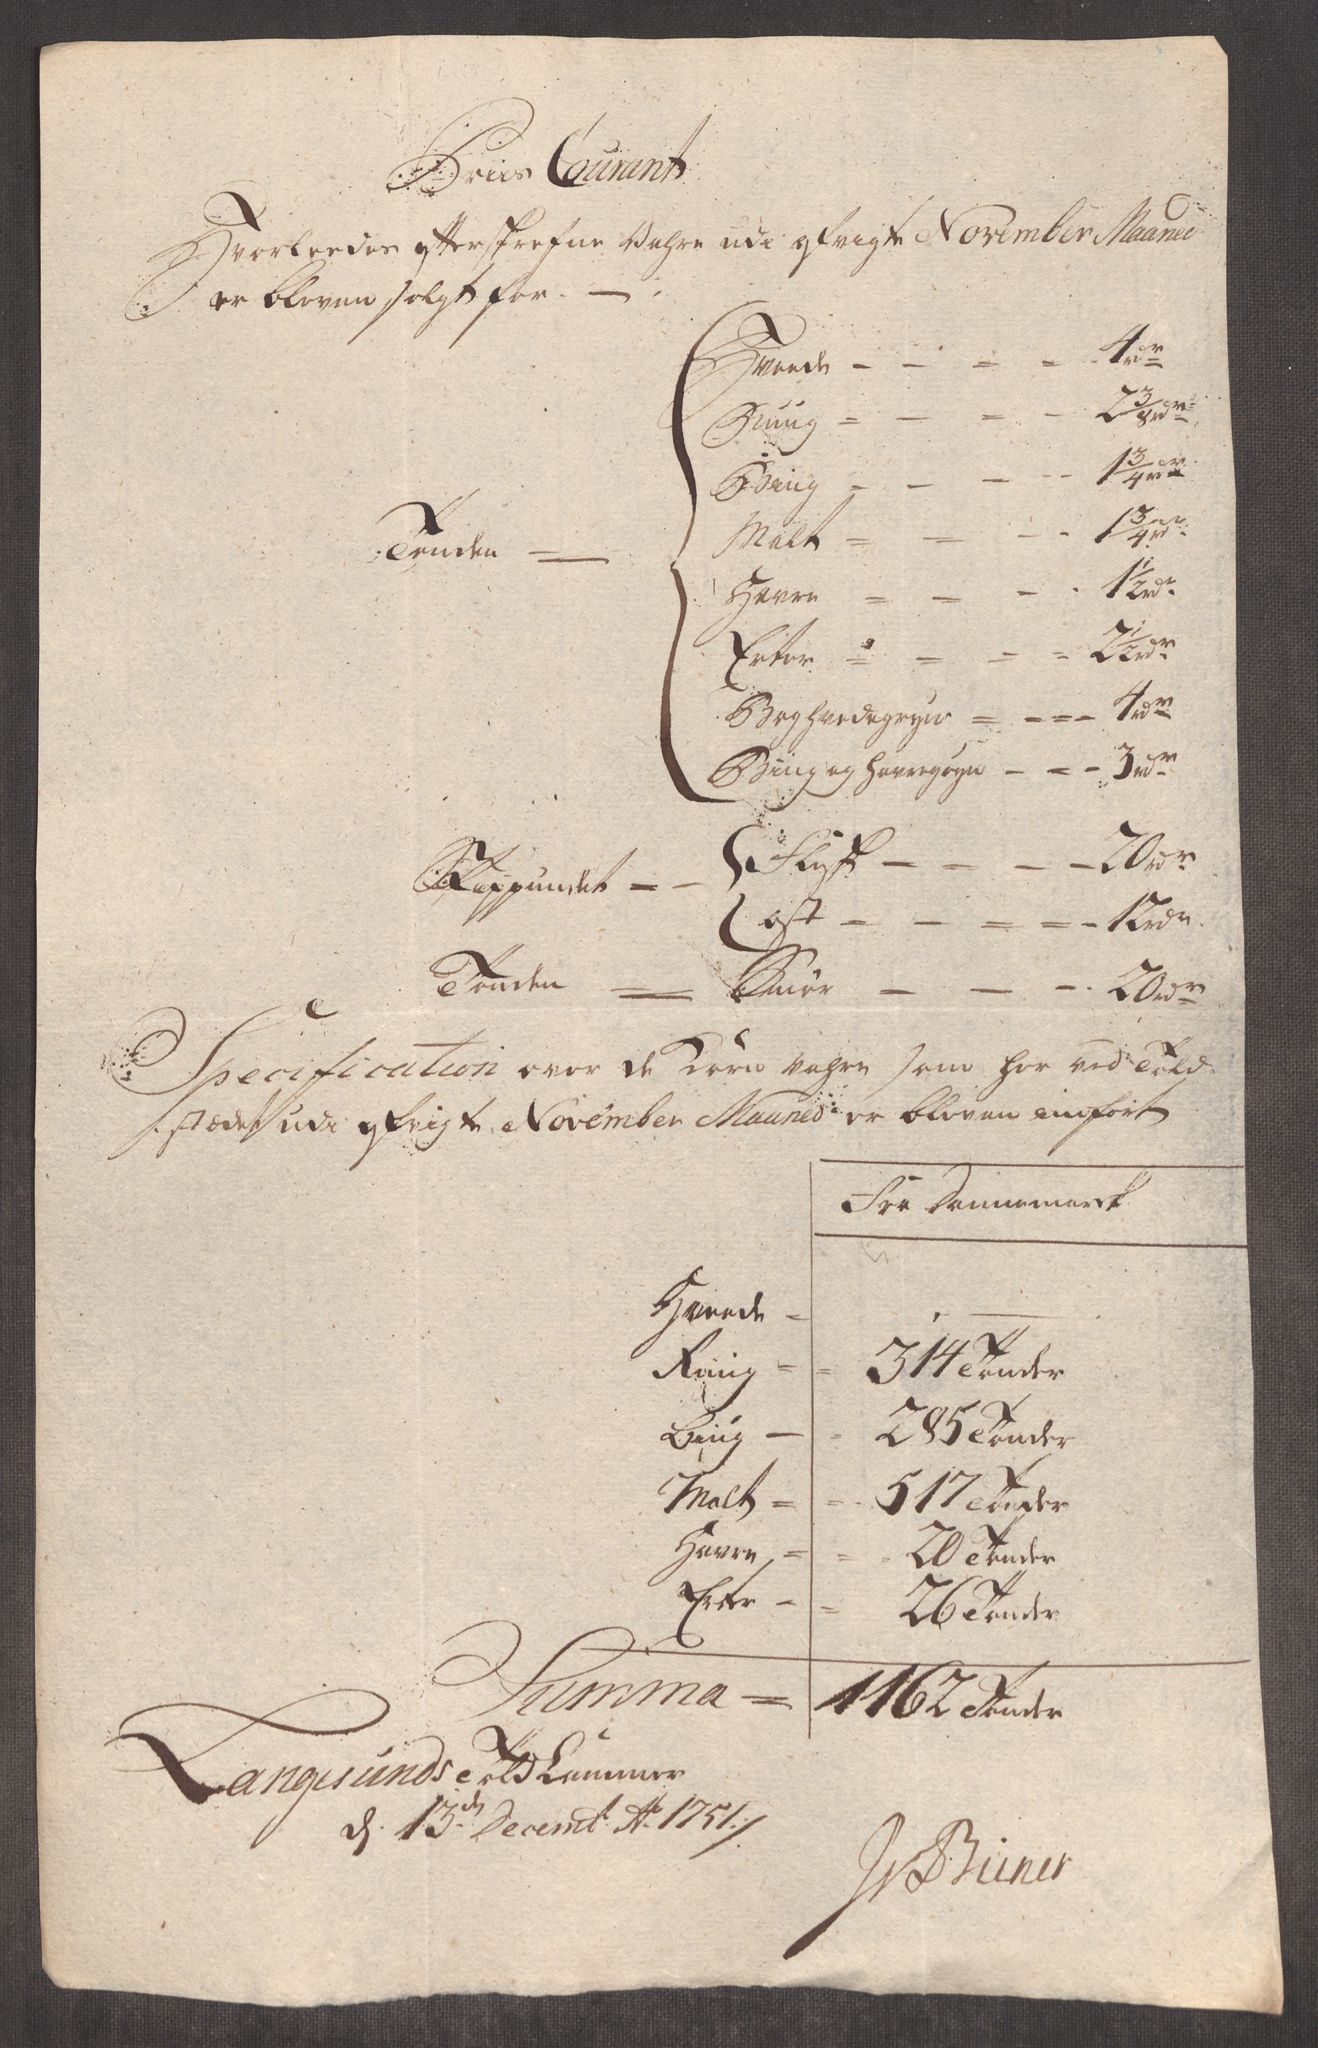 Priis Courant
Hvorleedes efterskrefne Vahre udi afvigte November Maaned
er bleven solgt for. —
Hveede — — = — 4 rdr
Ruug = — = — 2 3/8 rdr
Biug — — — — 1 3/4 rdr
Tønden =
Malt = = — - 1 3/4 rdr
Havre = = — 1 1/2 rdr
Erter = = = = 2 1/2 rdr
Boghvedegryn = — = = — 4 rdr
Biug og Havregryn — — = — 3 rdr
Skippundet = —
Flesk — — — — 20 rdr
Ost — — = = — 12 rdr
Tønden = Smør — — — 20 rdr
Specification over de Korn Vahre som her ved Told
stædet udi afvigte November Maaned er bleven indført
Fra Dannemarck
Hveede — . —
Rug = = 314 Tønder
Biug — - 285 Tønder
Malt = = 517 Tønder
Havre = = 20 Tønder
Erter — = 26 Tønder
Summa = 1162 Tønder
Langesunds Told Cammer
d. 13de Decembr Ao 1751.